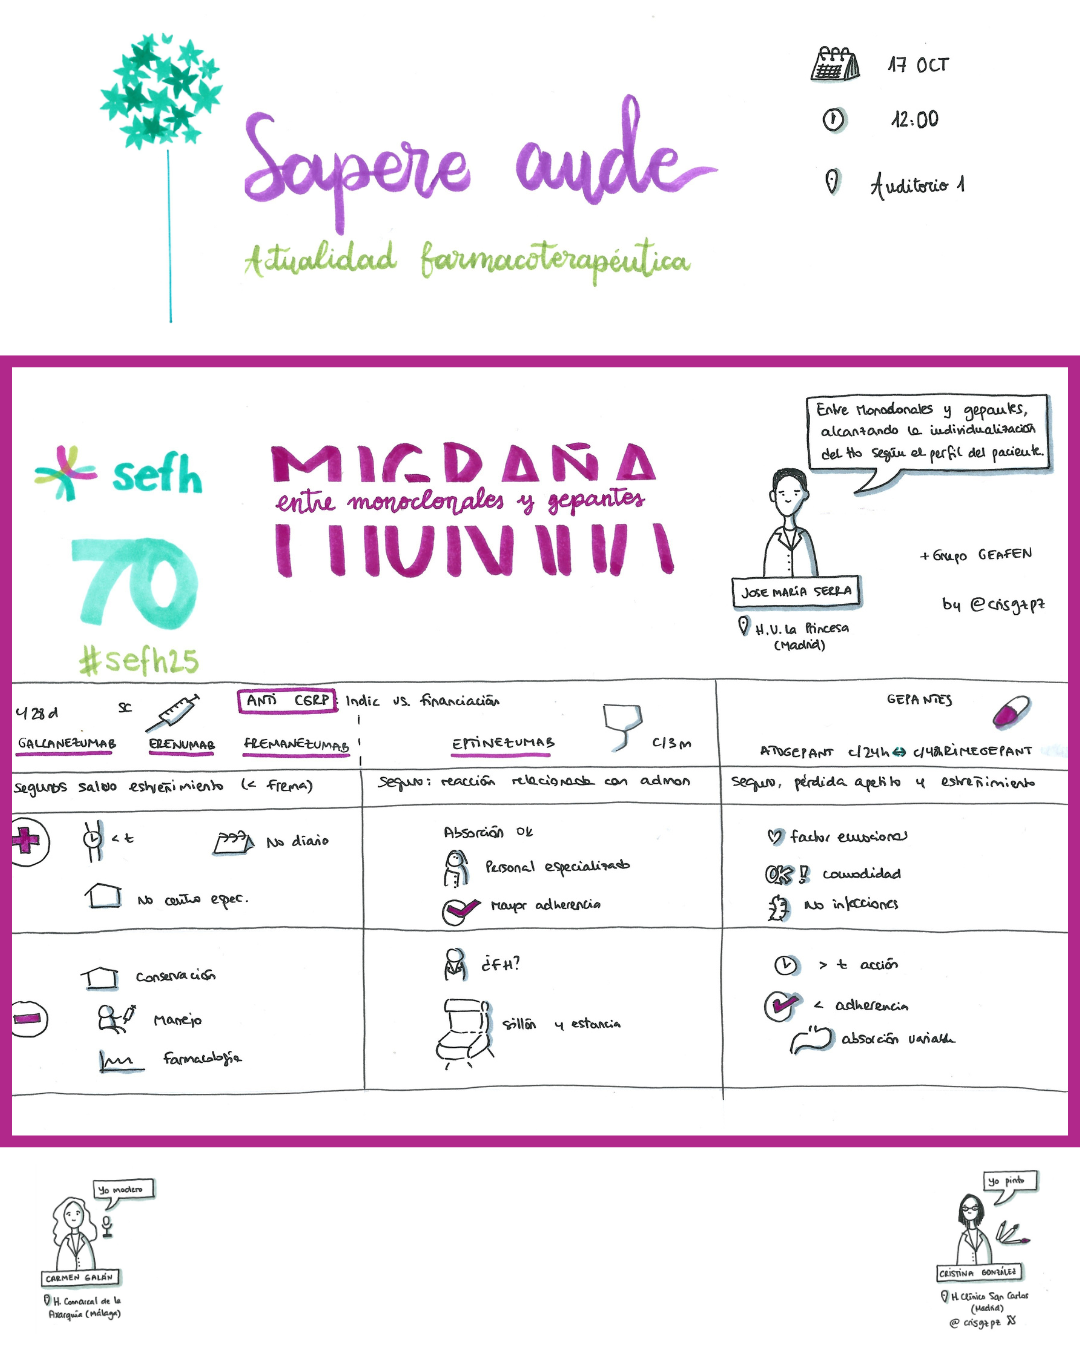 17 OCT
12:00
Auditorio 1
Sapere aude
Actualidad farmacoterapéutica
sefh
70
#sefh25
MIGRAÑA
entre monoclonales y gepantes
Entre Monoclonales y gepantes,
alcanzando la individualización
del tto según el perfil del paciente.
JOSE MARÍA SERRA
H.U. La Princesa
(Madrid)
+ Grupo GEAFEN
by @crisgzpz
28d
SC
ANTI CGRP: Indic vs. financiación
GALCANEZUMAB ERENUMAB FREMANEZUMAB
EPTINEZUMAB
c/3m
GEPANTES
ATOGEPANT c/24h ⇔ c/48h RIMEGEPANT
Seguros salvo estreñimiento (< Frema)
Seguro: reacción relacionada con admon
Seguro, pérdida apetito y estreñimiento
+
< t
No diario
No centro espec.
Absorción OK
Personal especializado
Mayor adherencia
factor emocional
OK! comodidad
No infecciones
-
Conservación
Manejo
Farmacología
¿FH?
Sillón y estancia
> t acción
< adherencia
absorción variable
Yo modero
CARMEN GALÁN
H. Comarcal de la
Axarquía (Málaga)
Yo pinto
CRISTINA GONZÁLEZ
H. Clínico San Carlos
(Madrid)
@crisgzpz